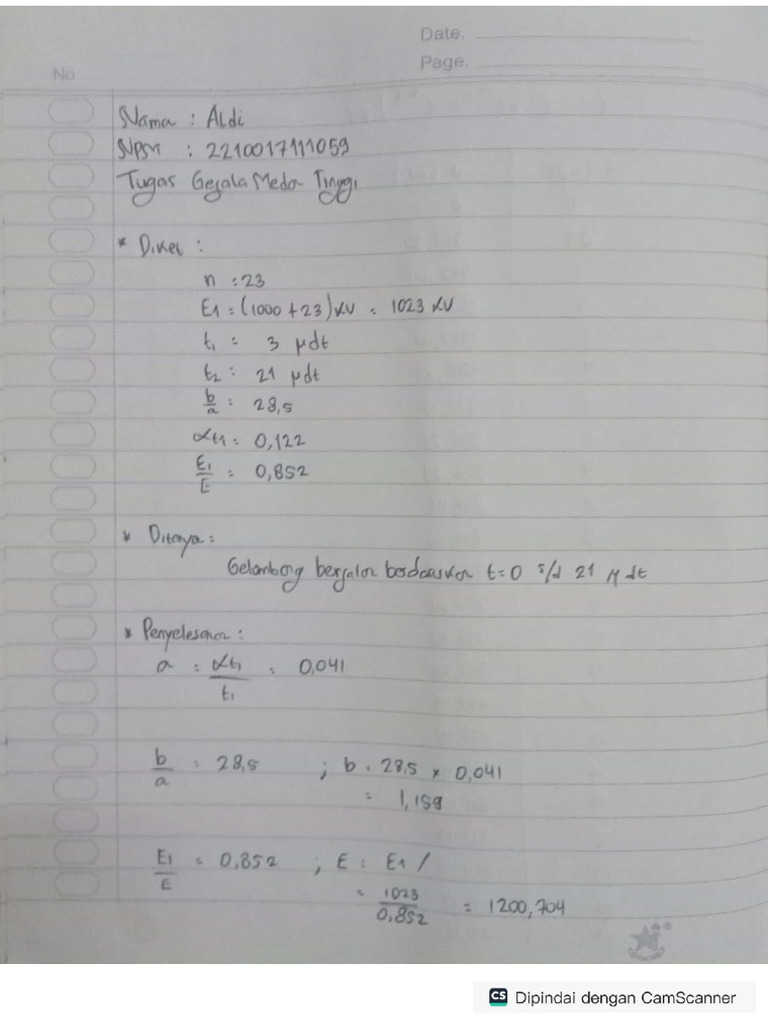 Date.
Page.
No
Nama : Aldi
NPM : 2210017111059
Tugas Gejala Medan Tinggi
* Diket :
n : 23
E1 = (1000 + 23) KV = 1023 KV
t₁ = 3 μdt
t₂ : 21 μdt
b/a : 28,5
αt1 = 0,122
E1/E = 0,852
* Ditanya :
Gelombang berjalan berdasarkan t=0 s/d 21 μdt
* Penyelesaian :
a = αt₁/t₁ = 0,041
b/a = 28,5 ; b = 28,5 × 0,041
= 1,159
E1/E = 0,852 ; E = E1 /
= 1023/0,852 = 1200,704
CS Dipindai dengan CamScanner